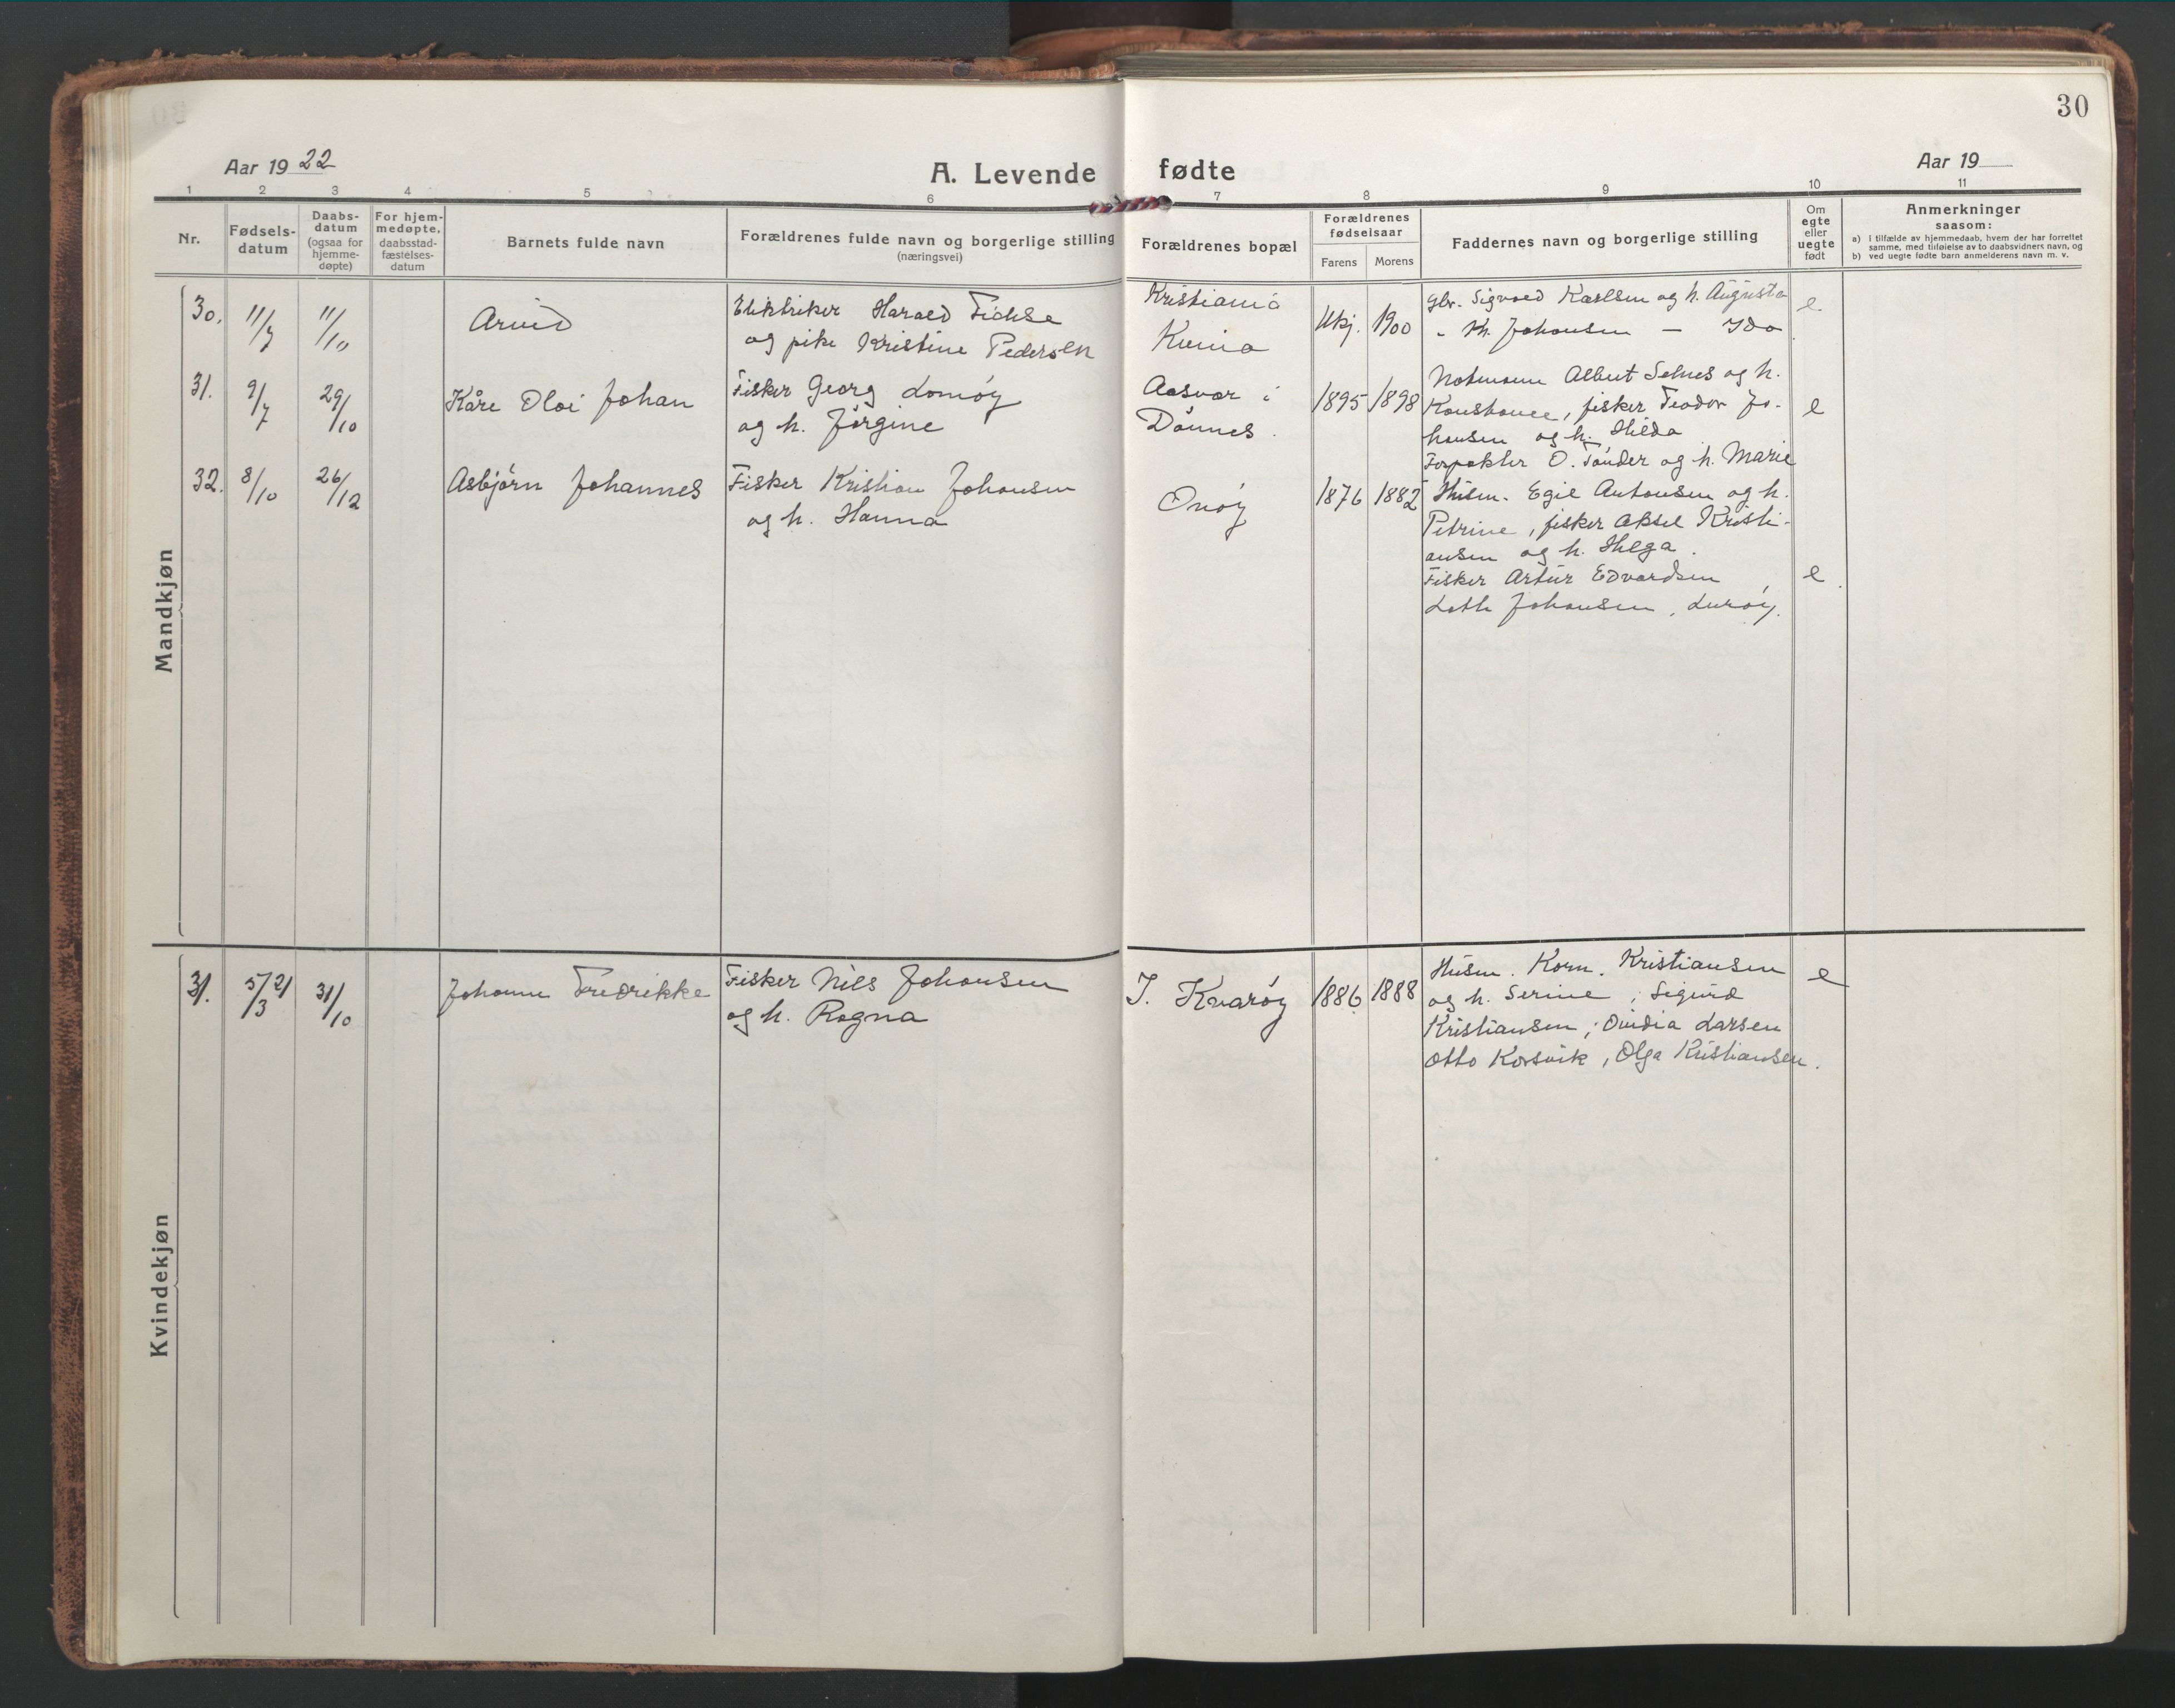 30
Aar 1922
A. Levende fødte
Aar 19
1 2 3 4 5 6 7 8 9 10 11
Nr.
Fødsels-
datum
Daabs-
datum
(ogsaa for
hjemme-
døpte)
For hjem-
medøpte,
daabsstad-
fæstelses-
datum
Barnets fulde navn
Forældrenes fulde navn og borgerlige stilling
(næringsvei)
Forældrenes bopæl
Forældrenes
fødselsaar
Farens Morens
Faddernes navn og borgerlige stilling
Om
egte
eller
uegte
født
Anmerkninger
saasom:
a) i tilfælde av hjemmedaab, hvem der har forrettet
samme, med tilføielse av to daabsvidners navn, og
b) ved uegte fødte barn anmelderens navn m. v.
Mandkjøn
30. 11/7 11/10 Arvid
Elektriker Harald
og pike Kristine Pedersen
Kristiania
Kvina
Ukj. 1900
Gbr. Sigvald Karlsen og h. Augusta
" Kr. Johansen — Ida
e.
31. 9/7 29/10 Kåre Olai Johan
Fisker Georg Lomøy
og h. Jørgine
Aasvær i
Dønnes.
1895 1898
Notmann Albert Selnes og h.
Konstance, fisker Teodor Jo-
hansen og h. Hilda
Forpakter O. Tønder og h. Marie
e
32. 8/10 26/12 Asbjørn Johannes
Fisker Kristian Johansen
og h. Hanna
Onøy
1876 1882
Husm. Egil Antonsen og h.
Petrine, fisker Aksel Kristi-
ansen og h. Helga.
Fisker Artur Edvardsen,
Loth Johansen, Lurøy.
e.
Kvindekjøn
31. 5/3 21 31/10 Johanne Fredrikke
Fisker Nils Johansen
og h. Ragna
I. Kvarøy
1886 1888
Husm. Korn. Kristiansen
og h. Serine; Sigurd
Kristiansen; Ovidia Larsen
Otto Korsvik, Olga Kristiansen.
e